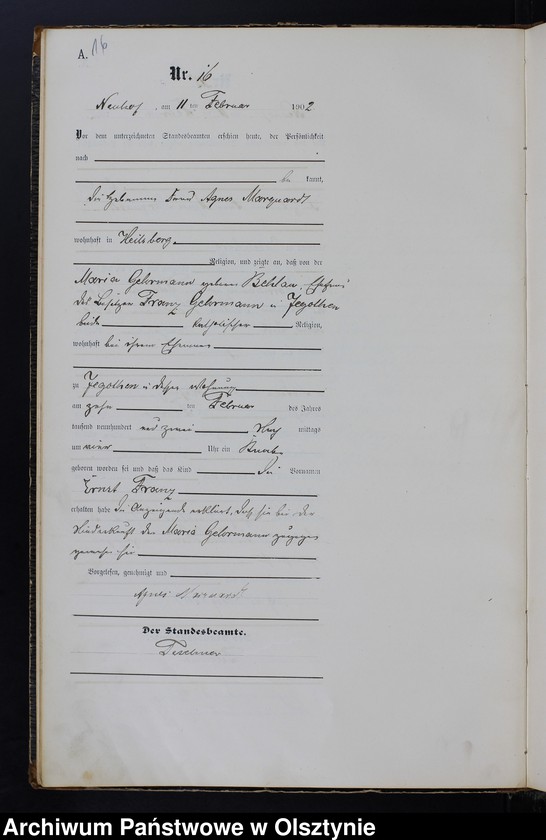 A. 16
Nr. 16
Neuhof, am 11 ten Februar 1902
Vor dem unterzeichneten Standesbeamten erschien heute, der Persönlichkeit
nach
be kannt,
die Hebamme Agnes Marquardt
wohnhaft in Heilsberg
Religion, und zeigte an, daß von der
Maria Gehrmann geborene Ehefrau
des Besitzers Franz Gehrmann Jegothen
beide katholischer Religion,
wohnhaft bei ihrem Ehemanne
zu Jegothen in dessen Wohnung
am zehn ten Februar des Jahres
tausend neunhundert und zwei Nach mittags
um Uhr ein Knabe
geboren worden sei und daß das Kind die Vornamen
Ernst Franz
erhalten habe. Die Anzeigende erklärt, daß sie bei der
Niederkunft der Maria Gehrmann zugegen
gewesen sei
Vorgelesen, genehmigt und
Agnes Marquardt
Der Standesbeamte.
Archiwum Państwowe w Olsztynie